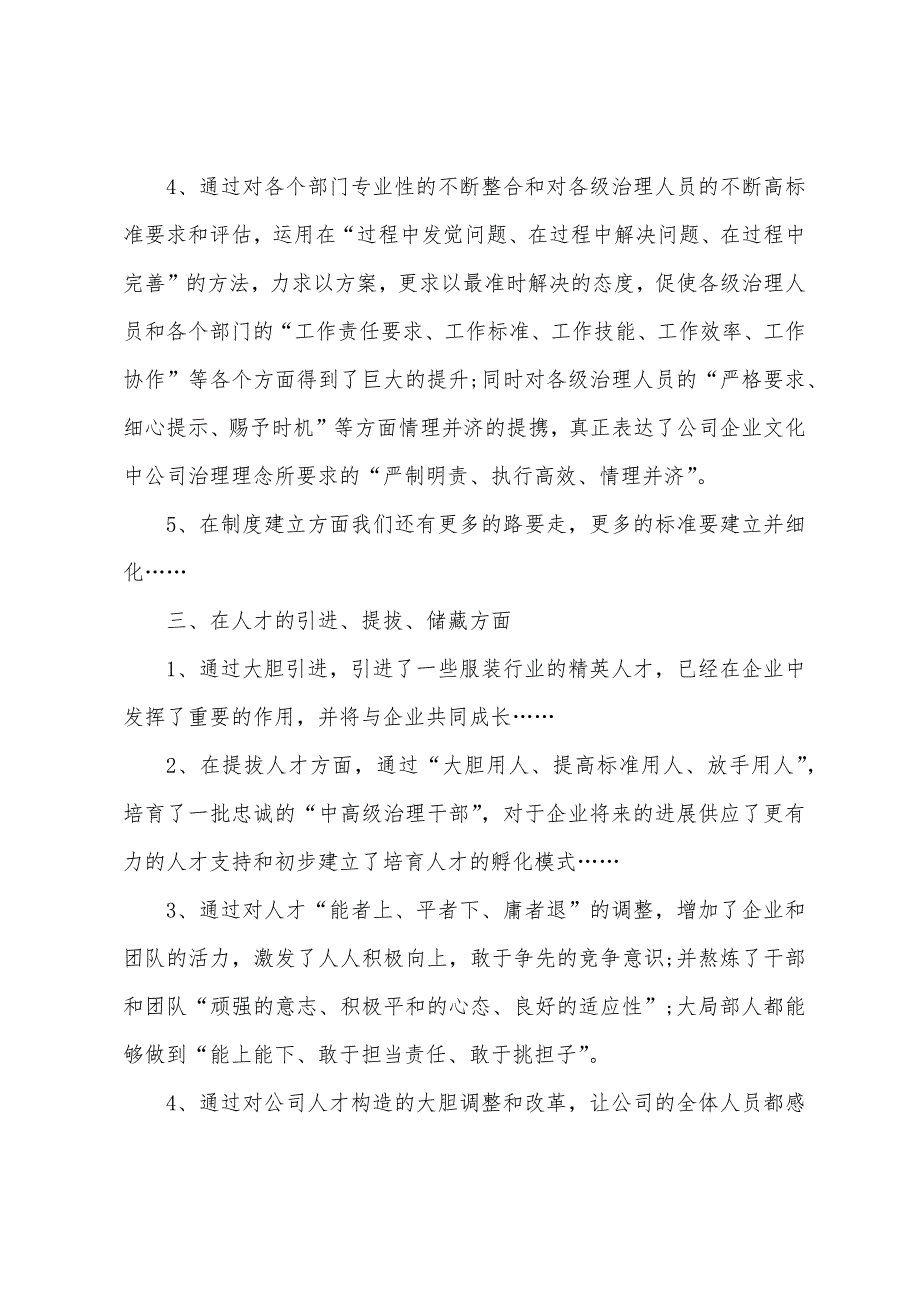 4、通过对各个部门专业性的不断整合和对各级治理人员的不断高标
准要求和评估，运用在“过程中发觉问题、在过程中解决问题、在过程中
完善”的方法，力求以方案，更求以最准时解决的态度，促使各级治理人
员和各个部门的“工作责任要求、工作标准、工作技能、工作效率、工作
协作”等各个方面得到了巨大的提升;同时对各级治理人员的“严格要求、
细心提示、赐予时机”等方面情理并济的提携，真正表达了公司企业文化
中公司治理理念所要求的“严制明责、执行高效、情理并济”。
5、在制度建立方面我们还有更多的路要走，更多的标准要建立并细
化……
三、在人才的引进、提拔、储藏方面
1、通过大胆引进，引进了一些服装行业的精英人才，已经在企业中
发挥了重要的作用，并将与企业共同成长……
2、在提拔人才方面，通过“大胆用人、提高标准用人、放手用人”，
培育了一批忠诚的“中高级治理干部”，对于企业将来的进展供应了更有
力的人才支持和初步建立了培育人才的孵化模式……
3、通过对人才“能者上、平者下、庸者退”的调整，增加了企业和
团队的活力，激发了人人积极向上，敢于争先的竞争意识;并熬炼了干部
和团队“顽强的意志、积极平和的心态、良好的适应性”;大局部人都能
够做到“能上能下、敢于担当责任、敢于挑担子”。
4、通过对公司人才构造的大胆调整和改革，让公司的全体人员都感